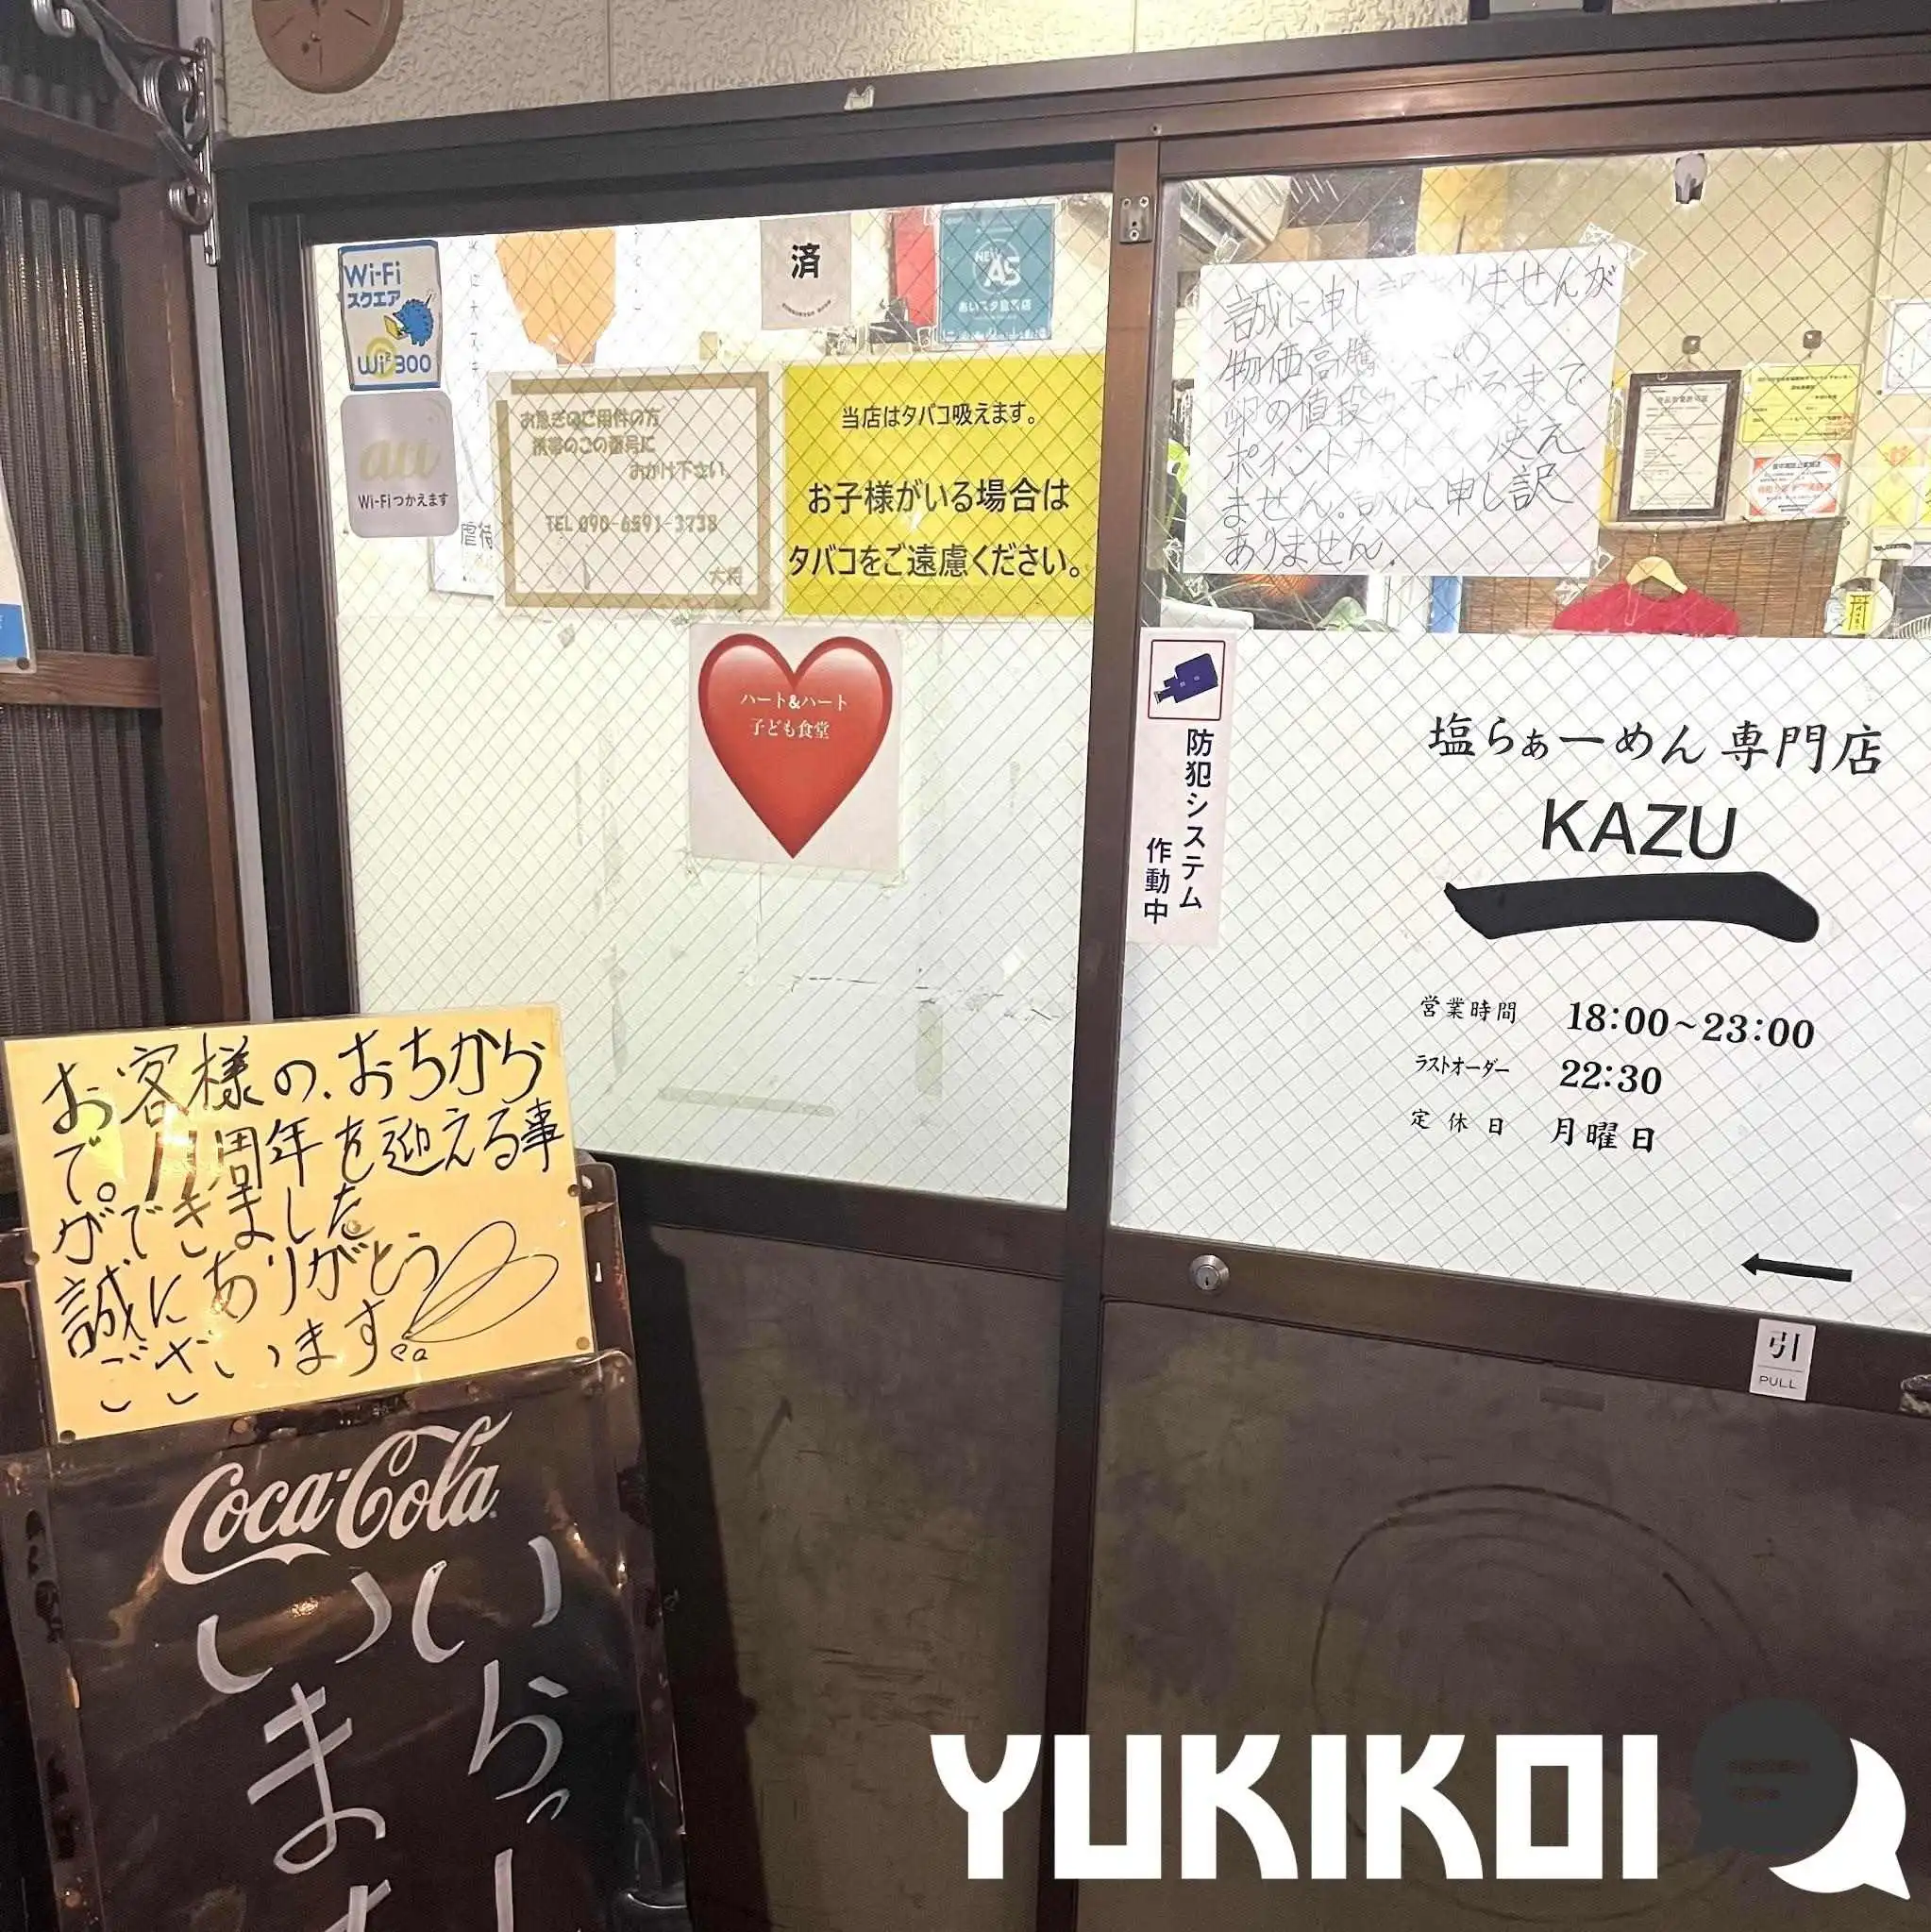 Wi-Fi
スクエア
Wi2 300
au
Wi-Fiつかえます
済
NEW
AS
お急ぎのご用件の方
携帯のこの番号に
おかけ下さい。
TEL 090-6591-3738
大将
当店はタバコ吸えます。
お子様がいる場合は
タバコをご遠慮ください。
ハート&ハート
子ども食堂
誠に申し訳ありませんが
物価高騰のため
卵の値段が下がるまで
ポイントカードが使え
ません。誠に申し訳
ありません。
防犯システム
作動中
塩らぁーめん専門店
KAZU
一
営業時間 18:00~23:00
ラストオーダー 22:30
定休日 月曜日
引
PULL
お客様の、おちから
で。11周年を迎える事
ができました
誠にありがとう
ございます。
Coca-Cola
いらっし
います
YUKIKOI